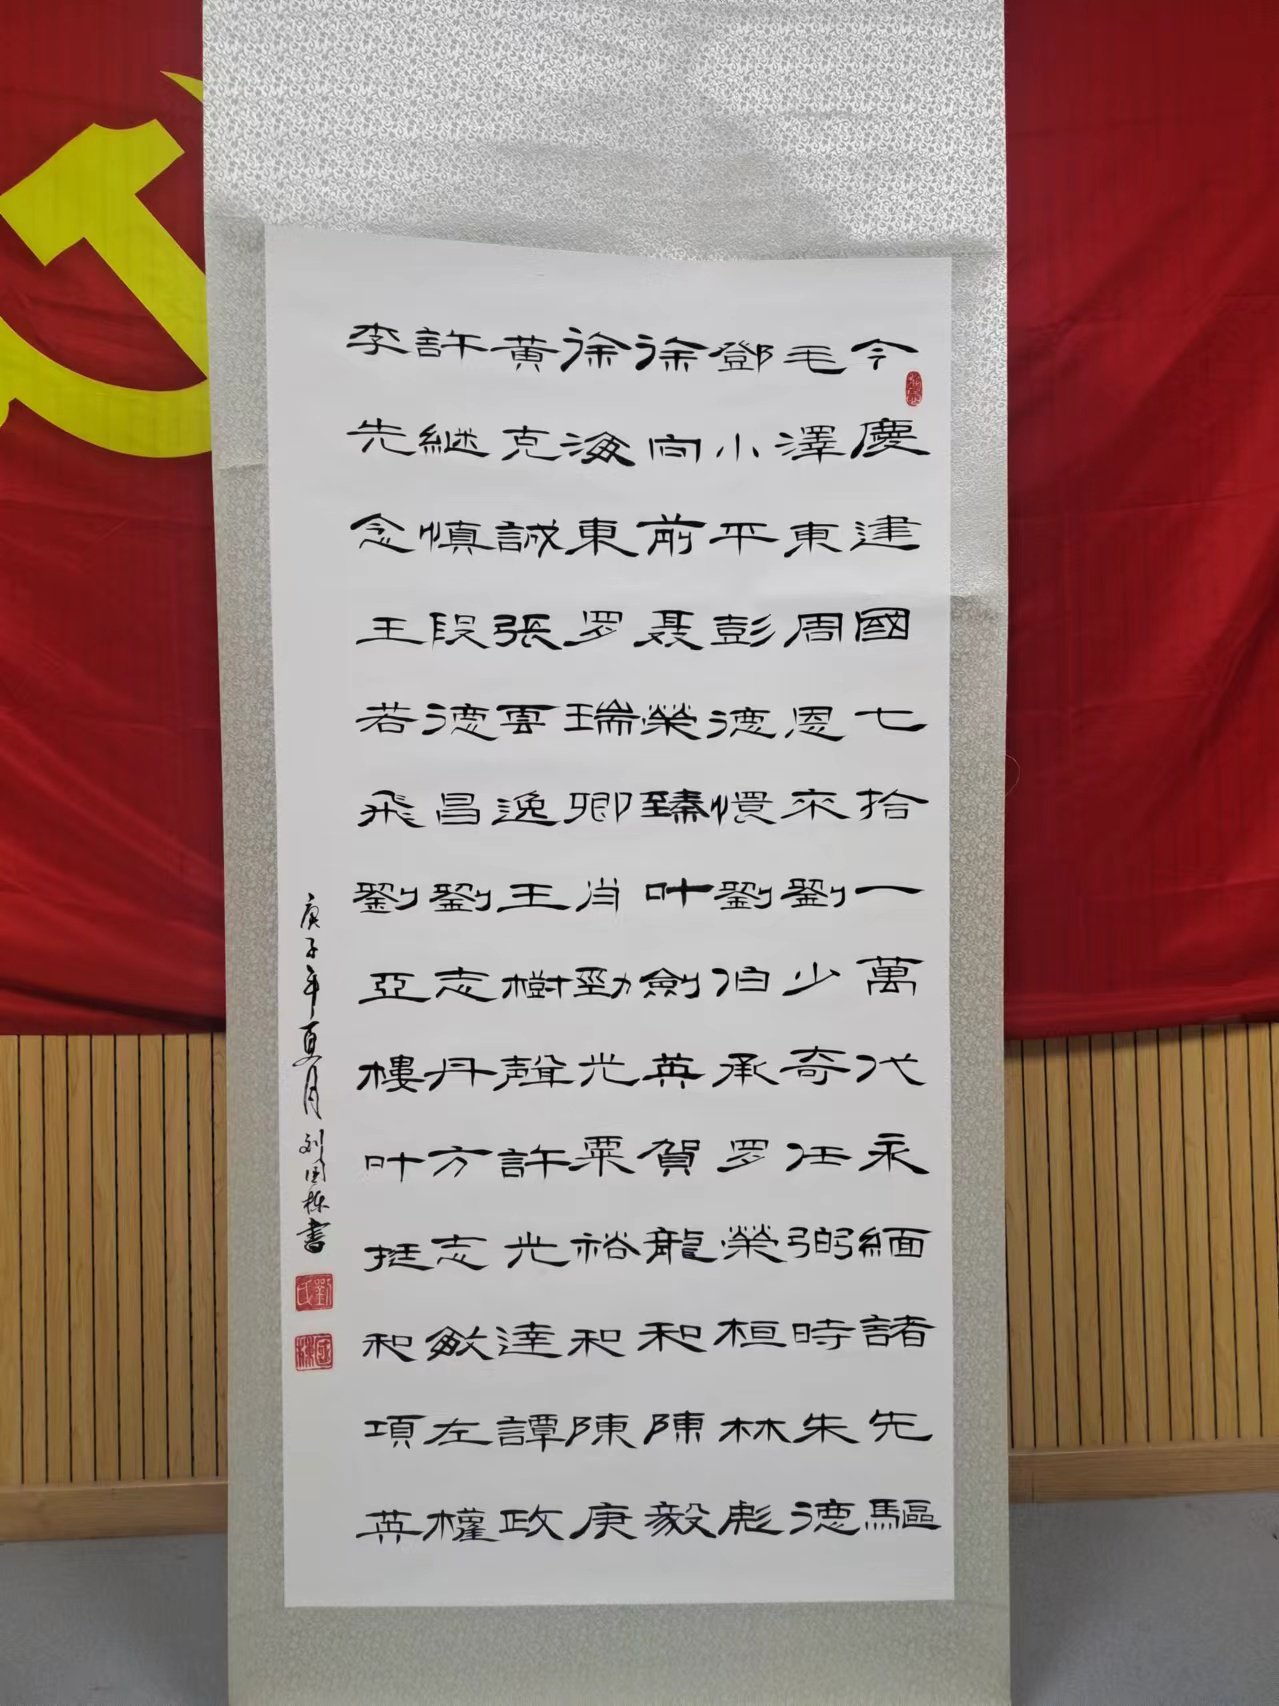 今慶建國七拾一萬代永緬諸先驅
毛澤東周恩來劉少奇任弼時朱德
鄧小平彭德懷劉伯承羅榮桓林彪
徐向前聂榮臻叶劍英賀龍和陳毅
徐海東罗瑞卿肖勁光粟裕和陳庚
黄克誠張雲逸王樹聲許光達譚政
許継慎段德昌劉志丹方志敏左權
李先念王若飛劉亞樓叶挺和項英
庚子年夏月刘国栋書
劉氏
國棟